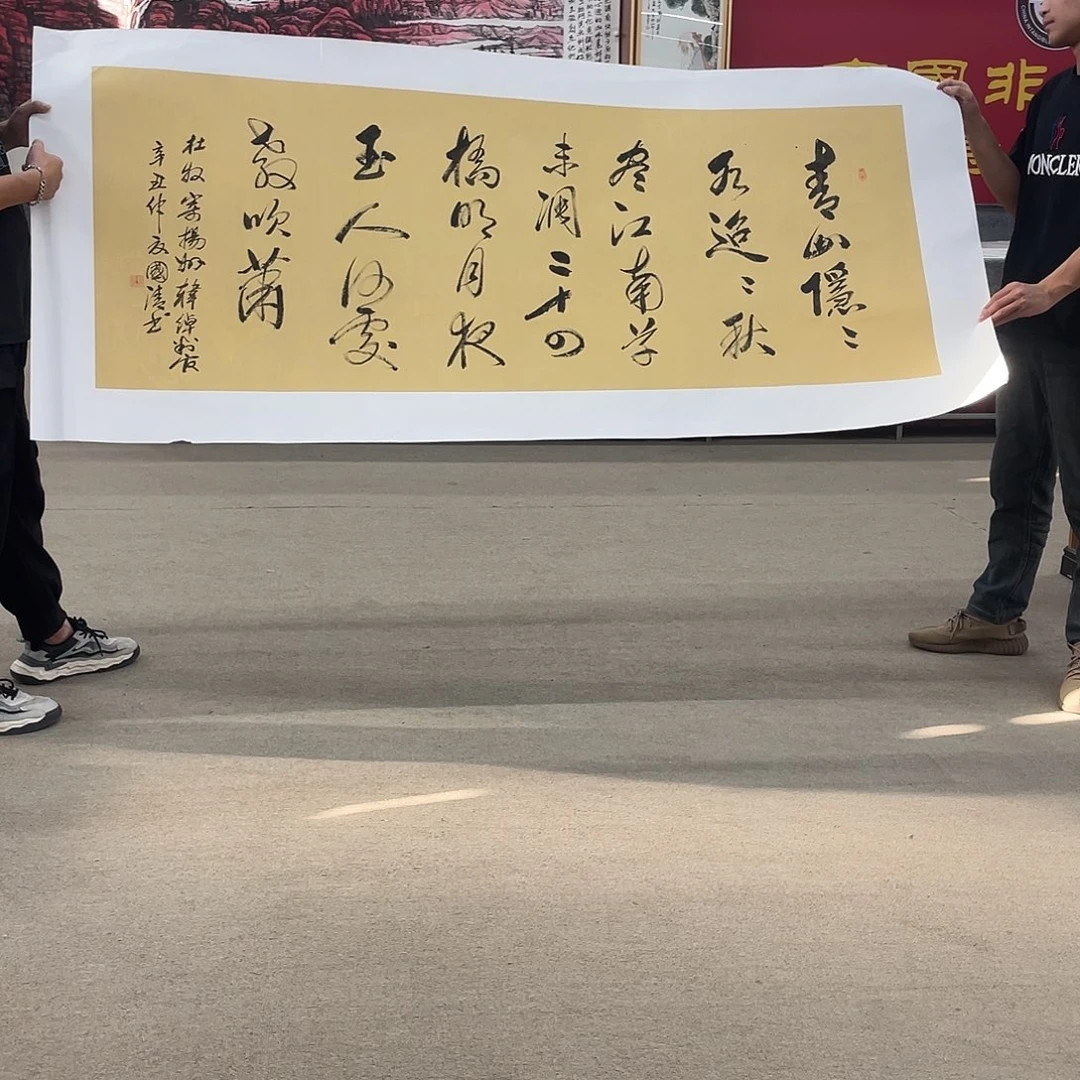 青山隱〻
水迢〻秋
盡江南草
未凋二十四
橋明月夜
玉人何處
教吹簫
杜牧寄揚州韓綽判官
辛丑仲夏國清書
國非
MONCLER